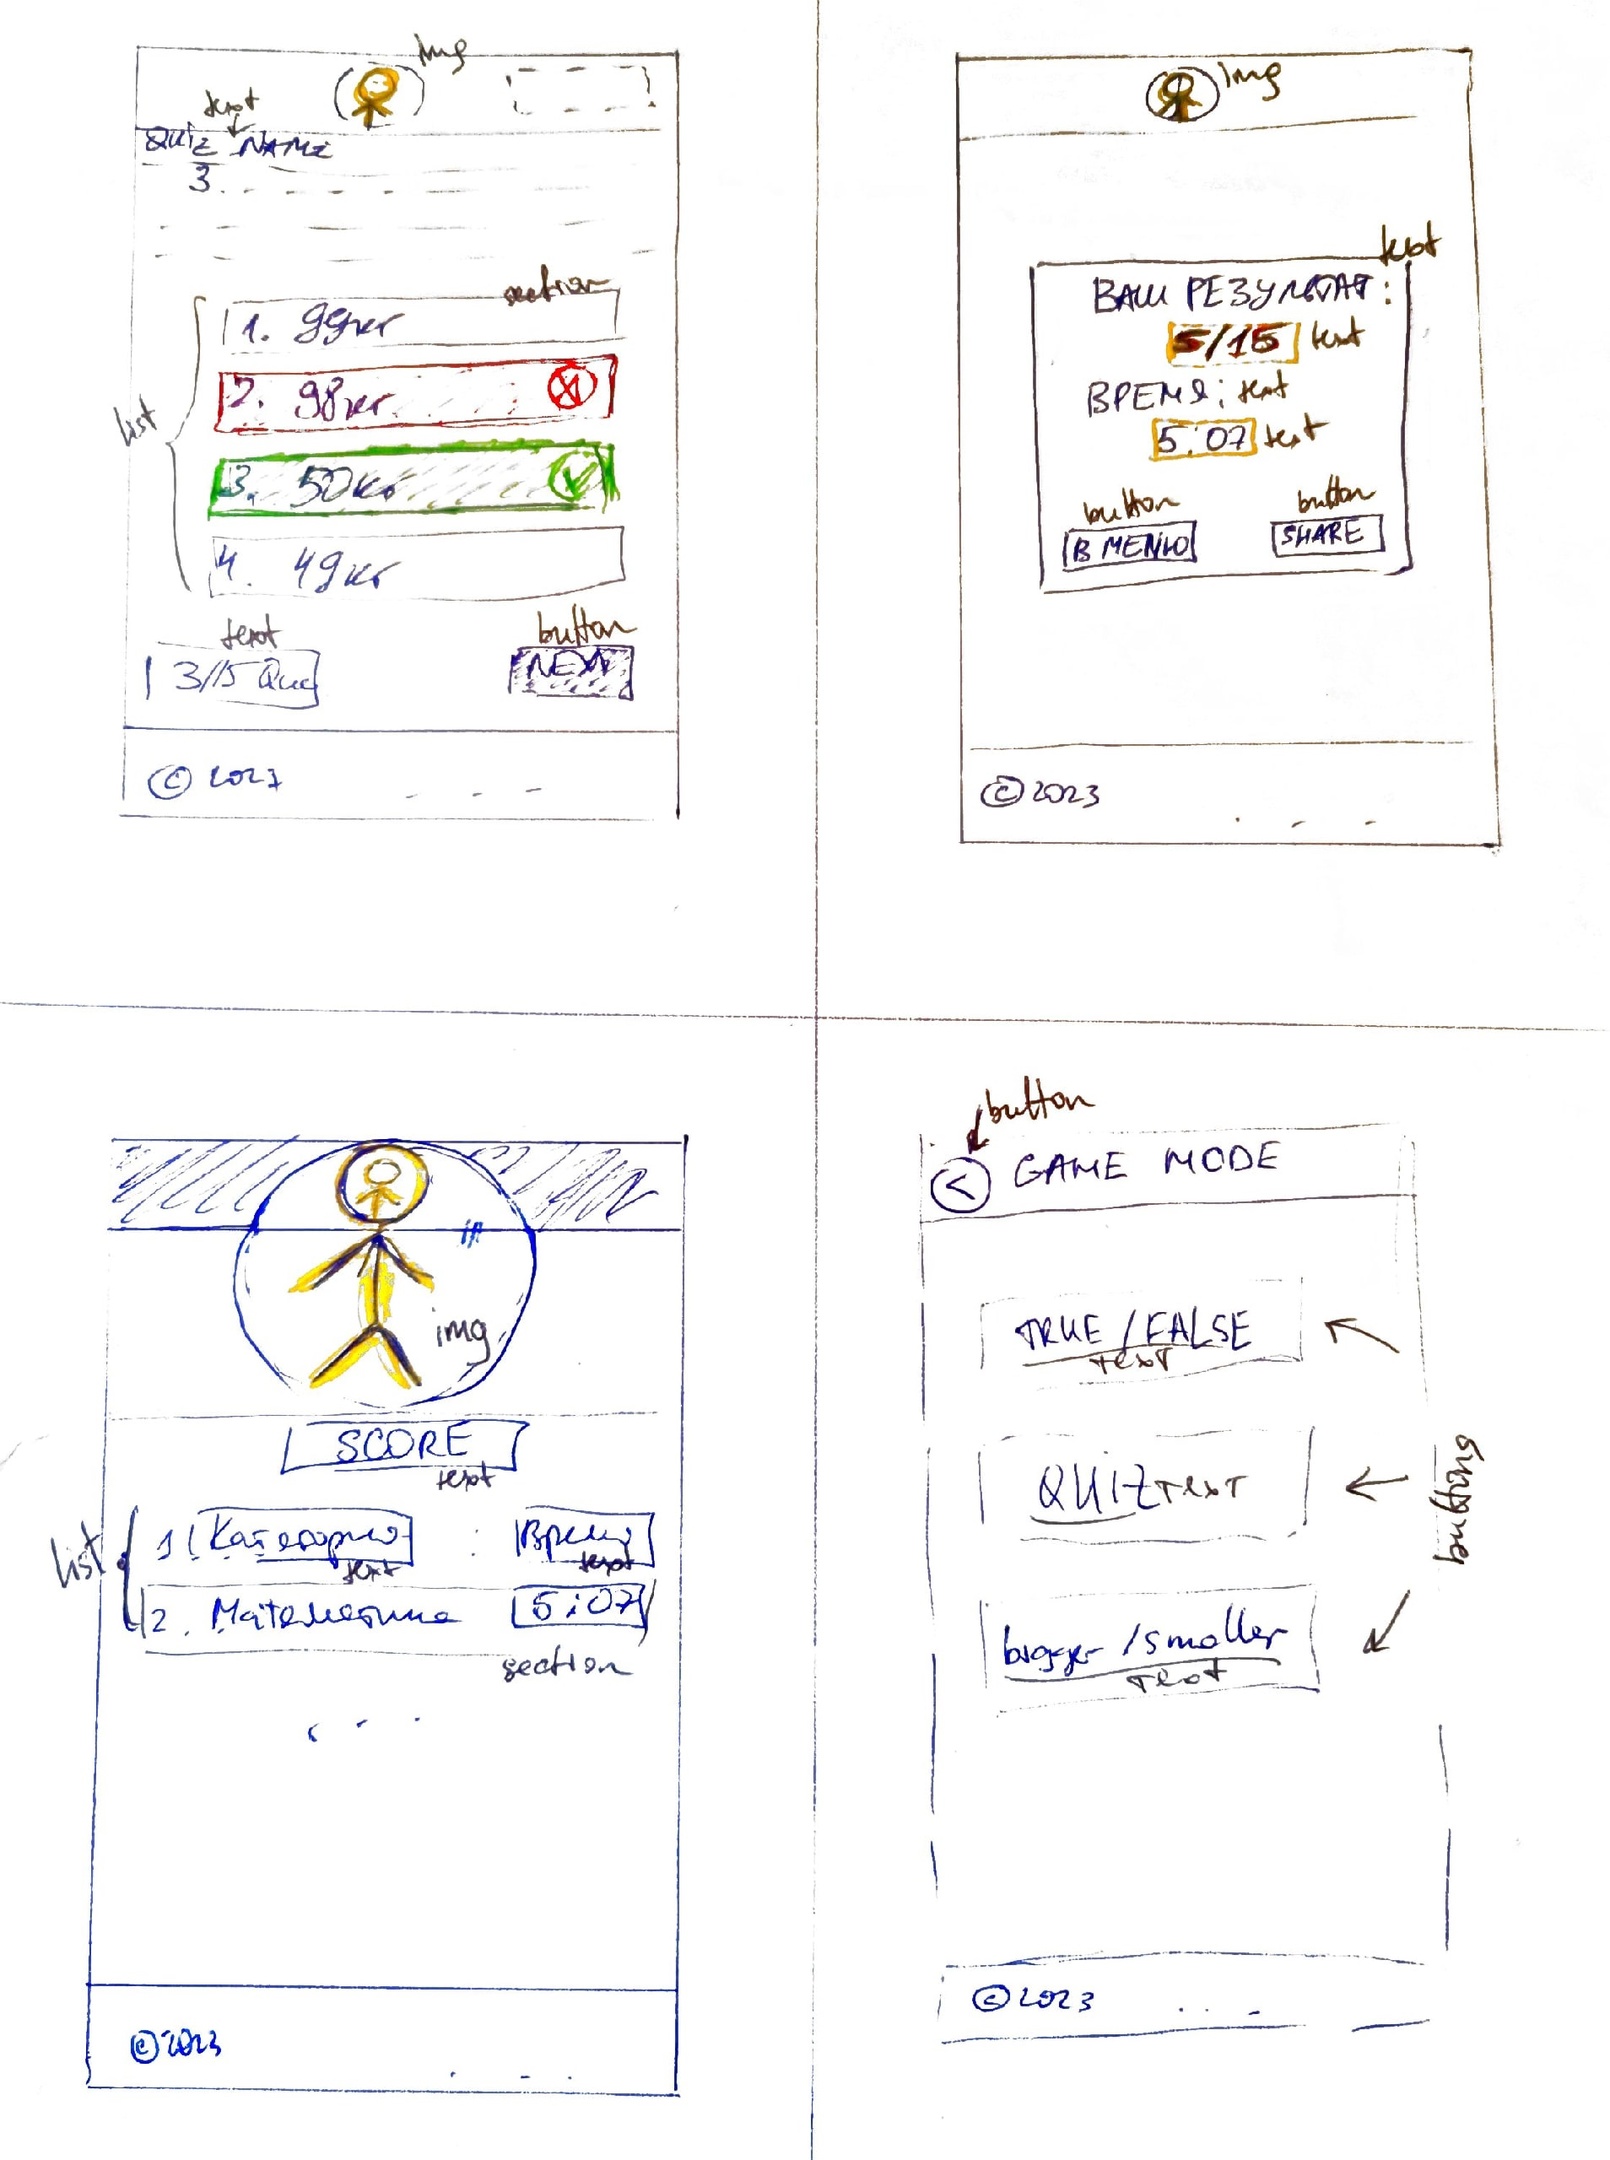 img
text
QUIZ NAME
3.
section
1. 99кг
2. 98кг
list
3. 50кг
4. 49кг
text
button
3/15 Que
NEXT
© 2023
img
text
ВАШ РЕЗУЛЬТАТ:
5/15 text
ВРЕМЯ: text
5:07 text
button button
В МЕНЮ SHARE
© 2023
img
SCORE
text
list
1. Категория : Время
text text
2. Математика 5:07
section
© 2023
button
< GAME MODE
TRUE / FALSE
text
QUIZ text
button
bigger / smaller
text
© 2023